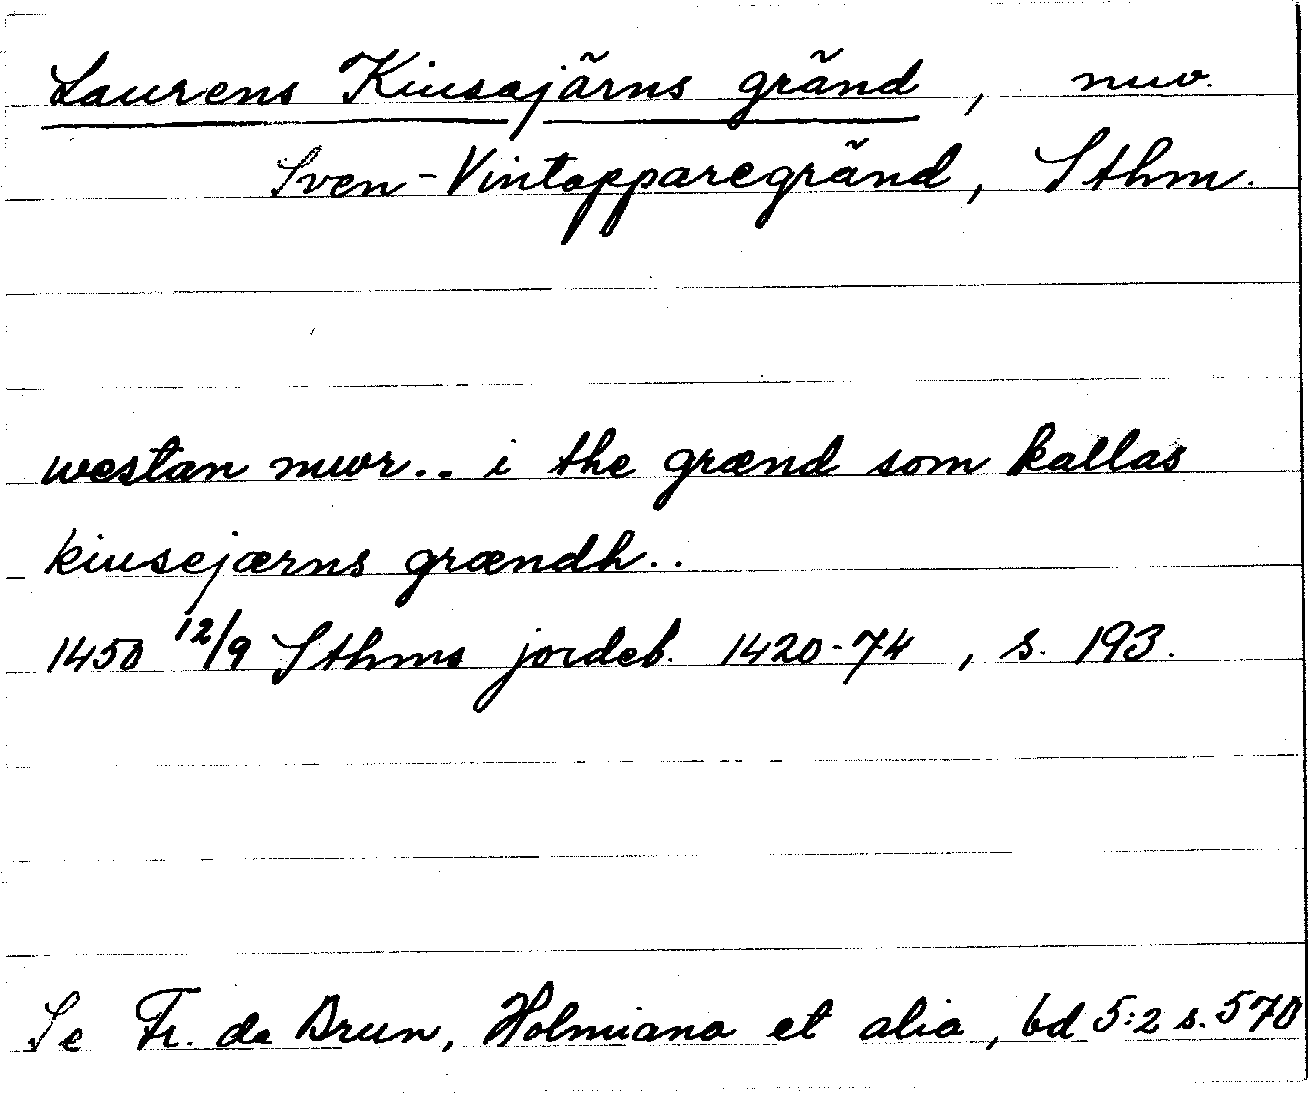 Laurens Kiusajärns gränd, nuv.
Sven-Vintapparegränd, Sthm.
westan mwr.. i the grænd som kallas
kiusejærns grændh..
1450 12/9 Sthms jordeb. 1420-74, s. 193.
Se Fr. de Brun, Holmiana et alia, bd 5:2 s. 570